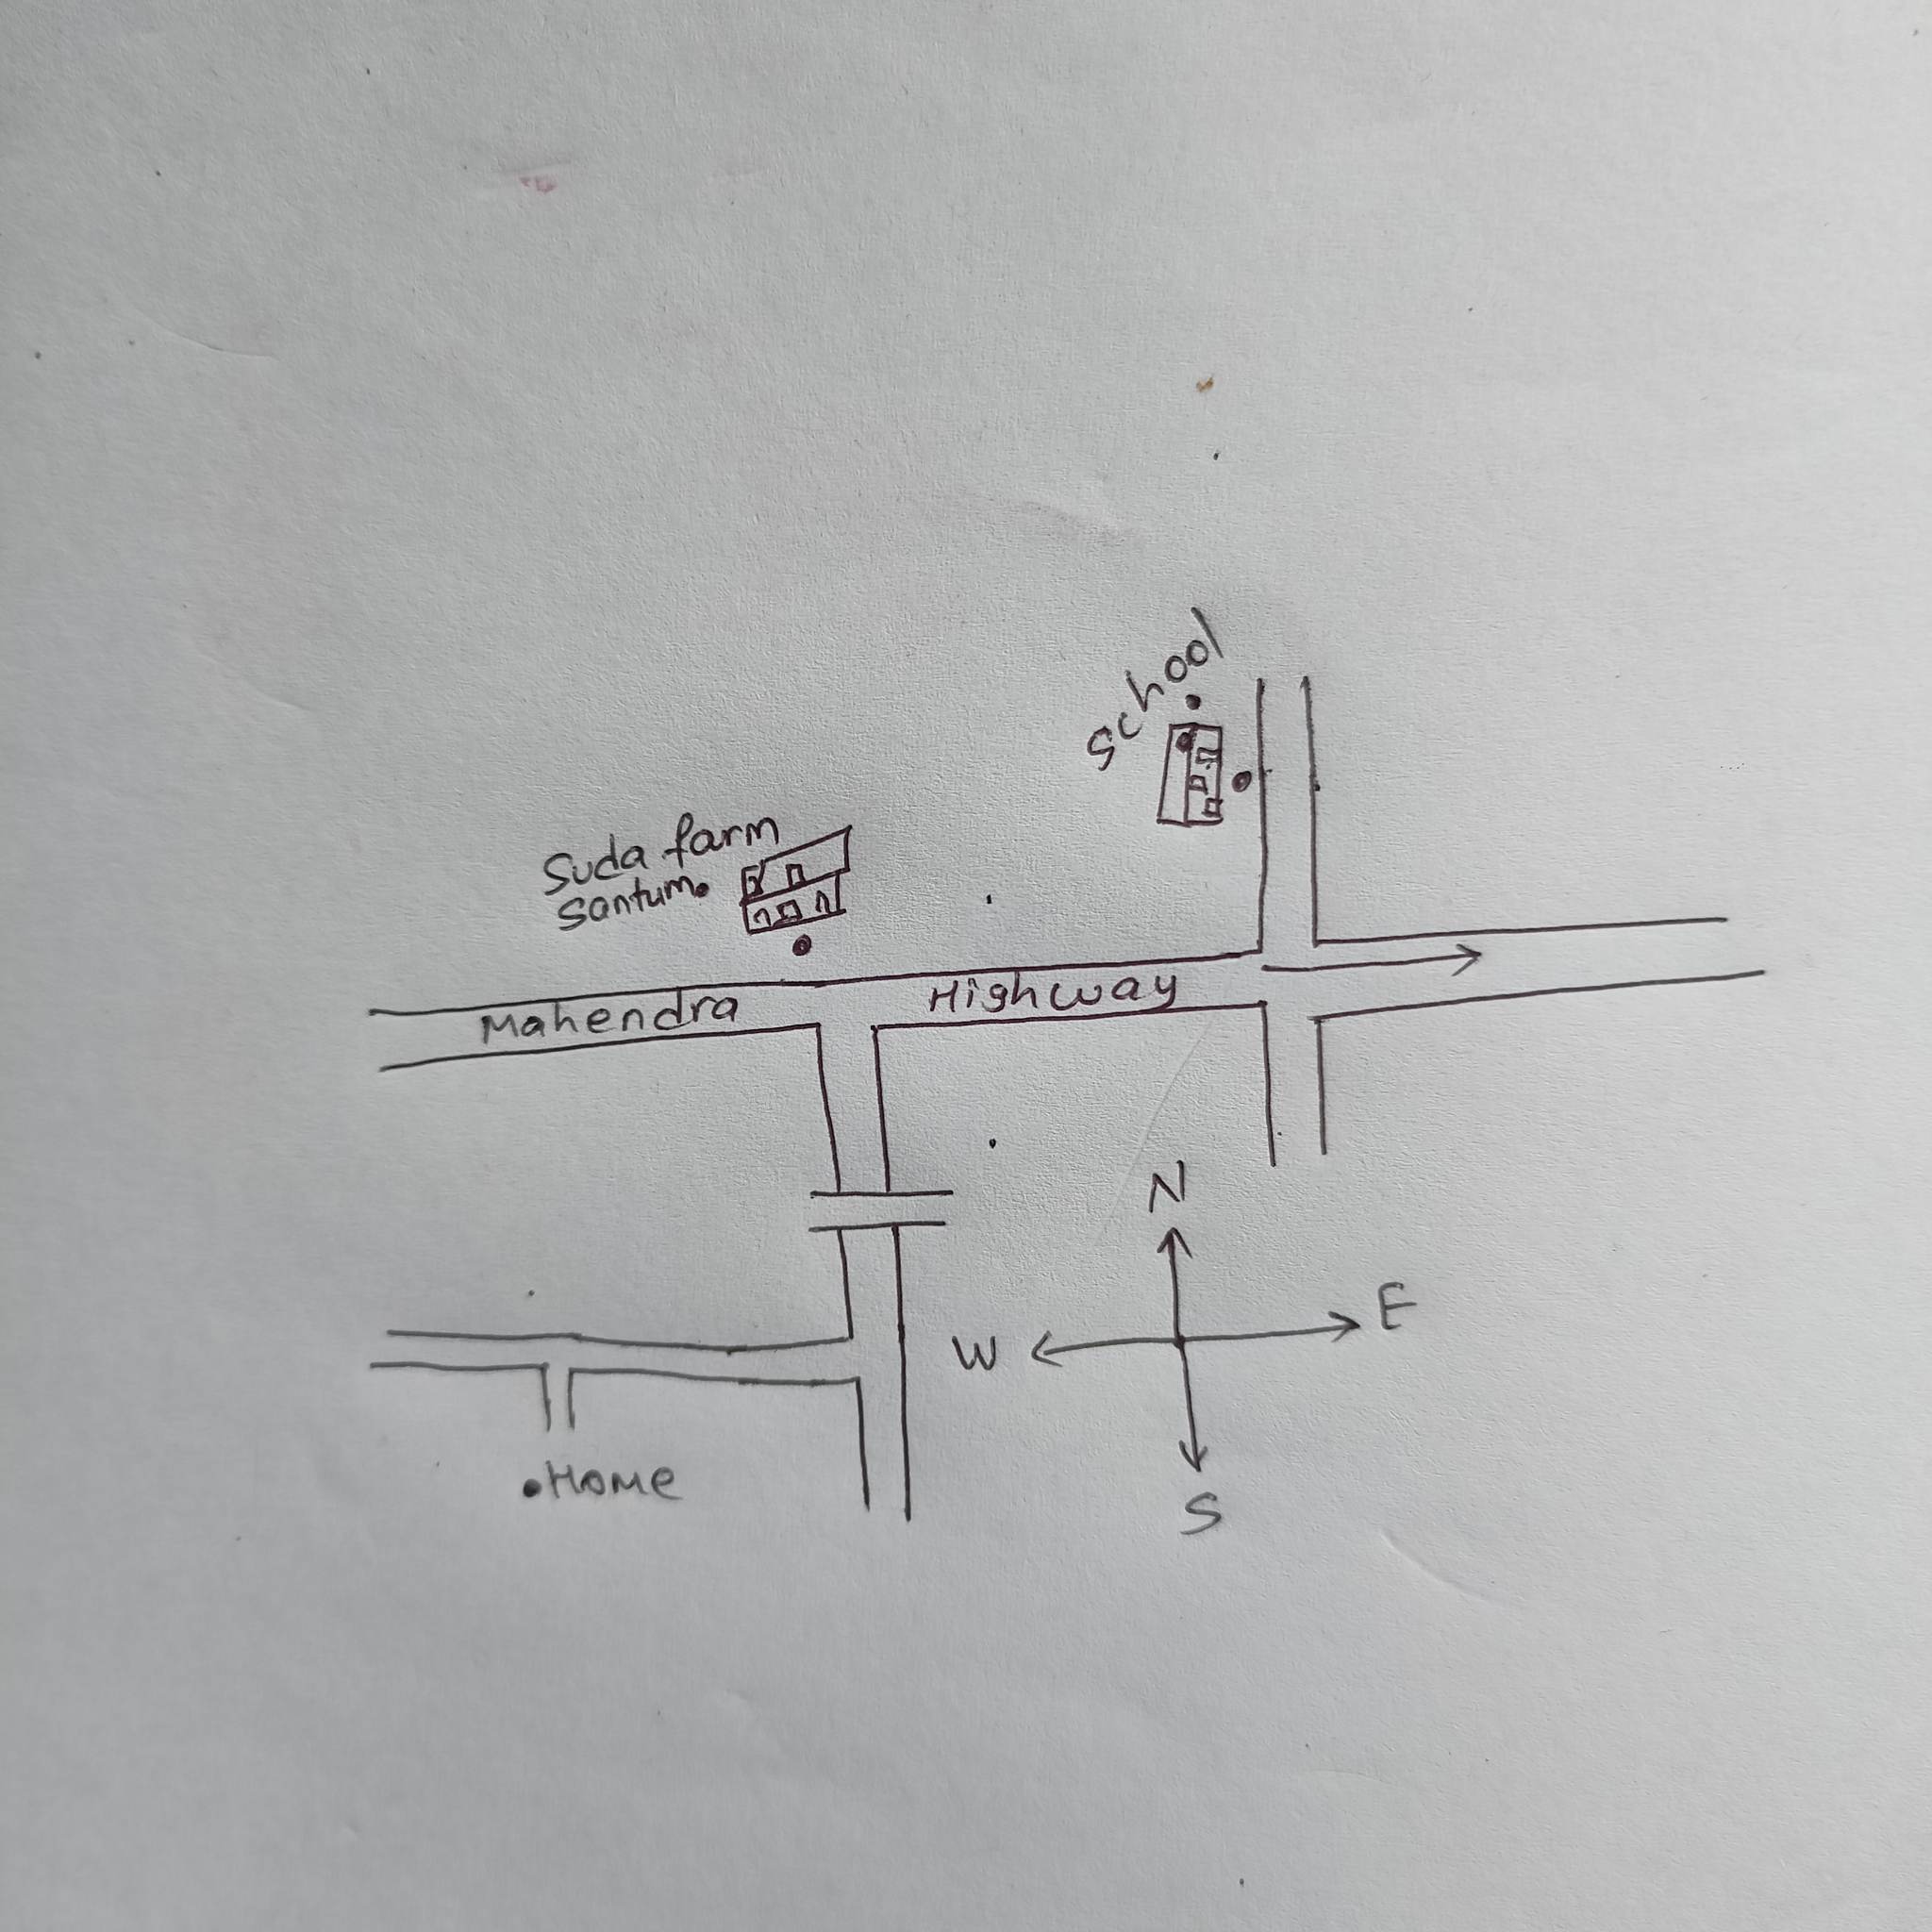 School
Suda farm
Santum
Mahendra Highway
N
W E
S
Home